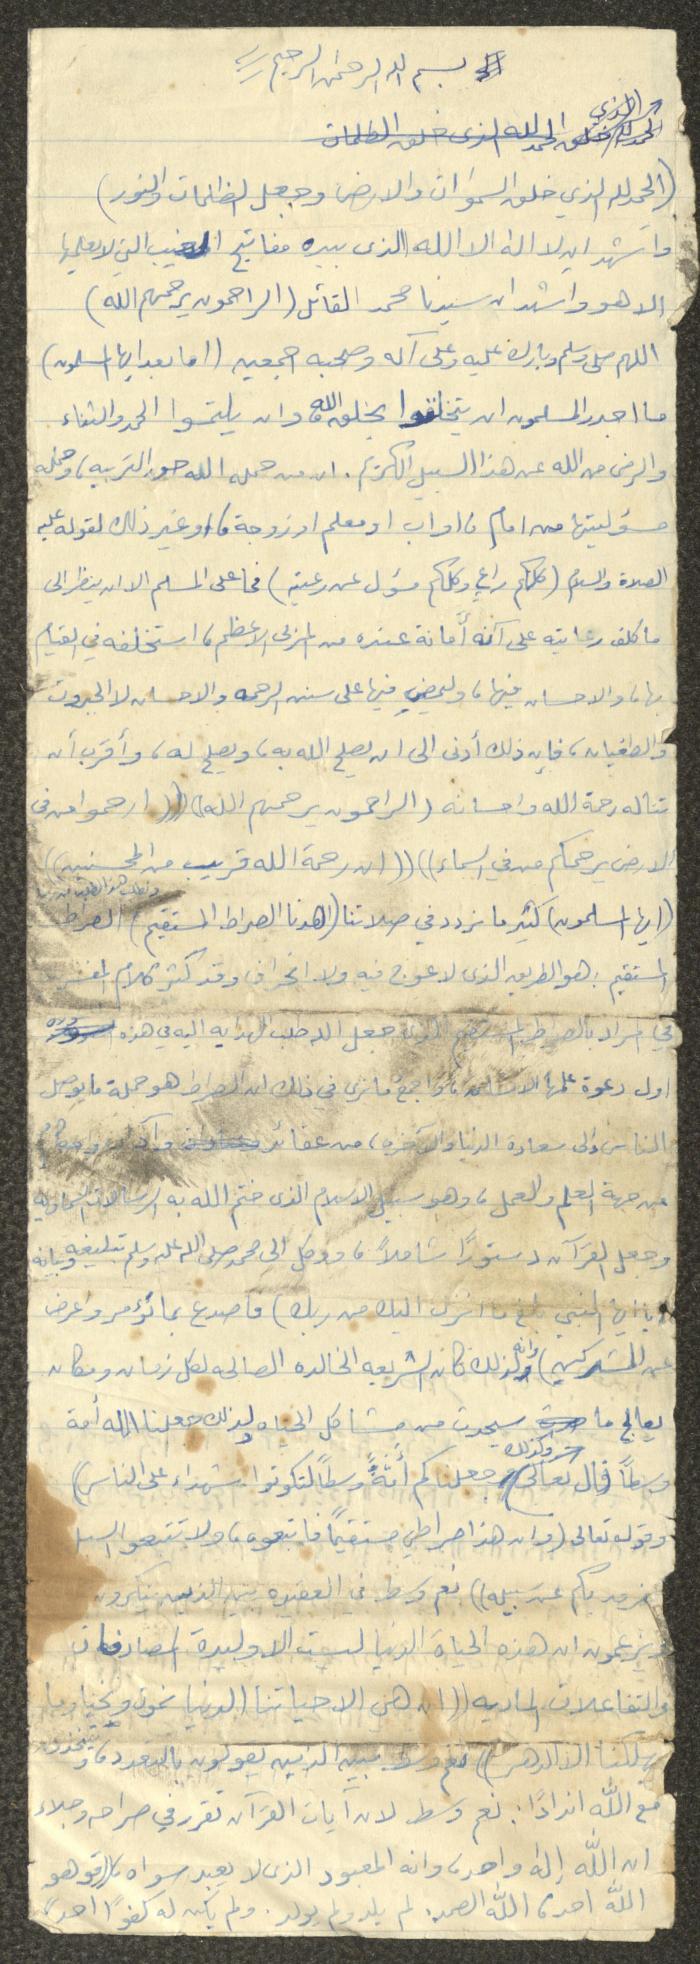 بسم الله الرحمن الرحيم
الحمد لله الذي خلق الحمد لله الذي خلق الظلمات
(الحمد لله الذي خلق السموات والارض وجعل الظلمات والنور)
واشهد ان لا اله الا الله الذى بيده مفاتيح الغيب التي لا يعلمها
الا هو واشهد ان سيدنا محمد القائل (الراحمون يرحمهم الله)
اللهم صلى وسلم وبارك عليه وعلى آله وصحبه اجمعين (اما بعد ايها المسلمون)
ما اجدر المسلمون ان يتخلقوا بخلق الله، وان يلتمسوا الحمد والثناء
والرضى من الله عن هذا السبيل الكريم. ان من حمله الله حق التربيه، وحمله
مسؤليتها من امام، او اب او معلم او زوجة، او غير ذلك لقوله عليه
الصلاة والسلام (كلكم راعي وكلكم مسؤل عن رعيته) فما على المسلم الا ان ينظر الى
ما كلف رعايته على أنه أمانة عنده من المربى الاعظم، استخلفه في القيام
بها، والاحسان فيها، وليمضي فيها على سنن الرحمه والاحسان لا الجبروت
والطغيان، فإن ذلك أدنى الى ان يصلح الله به، ويصلح له، وأقرب أن
تناله رحمة الله واحسانه (الراحمون يرحمهم الله) ((ارحموا من فى
الارض يرحمكم من في السماء)) ((ان رحمة الله قريب من المحسنين))
(ايها المسلمون) كثير ما نردد في صلاتنا (اهدنا الصراط المستقيم) الصراط
المستقيم: هو الطريق الذى لا عوج فيه ولا انحراف وقد كثر كلام المفسرين
في المراد بالصراط المستقيم الذى جعل الله طلب الهدايه اليه في هذه السورة
اول دعوة علمها الانسان، واجمع ما نرى في ذلك ان الصراط هو جملة ما يوصل
الناس الى سعادة الدنيا والآخره، من عقائد وآداب واحكام
من جهة العلم والعمل، وهو سبيل الاسلام الذى ختم الله به الرسالات السماويه
وجعل القرآن دستورًا شاملاً، ووكل الى محمد صلى الله عليه وسلم تبليغه وبيانه
(يا ايها النبي بلغ ما انزل اليك من ربك) فاصدع بما تؤمر واعرض
عن المشركين) ولذلك كان الشريعه الخالده الصالحه لكل زمان ومكان
يعالج ما سيحدث من مشاكل الحياه ولذلك جعلنا الله أمة
وسطاً (قال تعالى) وكذلك جعلناكم أمةً وسطاً لتكونوا شهداء على الناس)
وقوله تعالى (وان هذا صراطي مستقيمًا فاتبعوه، ولا تتبعوا السبل
فتفرق بكم عن سبيله)) نعم وسط في العقيده بين الذين ينكرون
ويزعمون ان هذه الحياة الدنيا ليست الا وليدة المصادفات
والتفاعلات الماديه ((ان هي الا حياتنا الدنيا نموت ونحيا وما
يهلكنا الا الدهر)) نعم وسط بين الذين يقولون بالتعدد، ويتخذون
مع الله اندادًا: نعم وسط لان آيات القرآن تقرر في صراحه وجلاء
ان الله إله واحد، وانه المعبود الذى لا يعبد سواه، (قل هو
الله احد، الله الصمد. لم يلد ولم يولد. ولم يكن له كفوًا احد)